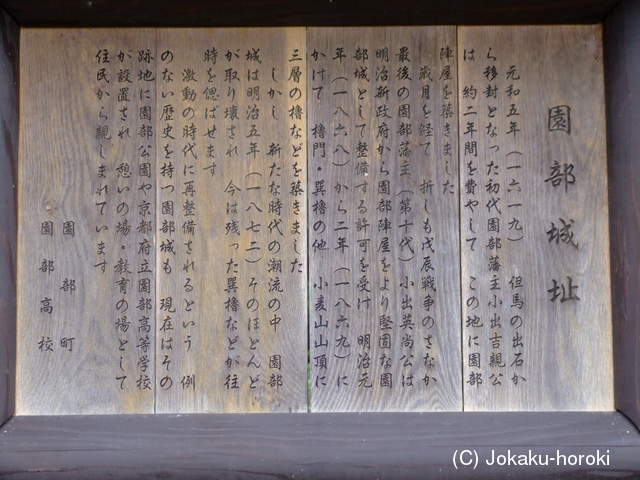 園部城址
元和五年（一六一九） 但馬の出石か
ら移封となった初代園部藩主小出吉親公
は 約二年間を費やして この地に園部
陣屋を築きました
歳月を経て 折しも戊辰戦争のさなか
最後の園部藩主（第十代）小出英尚公は
明治新政府から園部陣屋をより堅固な園
部城として整備する許可を受け 明治元
年（一八六八）から二年（一八六九）に
かけて 櫓門・巽櫓の他 小麦山山頂に
三層の櫓などを築きました
しかし 新たな時代の潮流の中 園部
城は明治五年（一八七二）そのほとんど
が取り壊され 今は残った巽櫓などが往
時を偲ばせます
激動の時代に再整備されるという 例
のない歴史を持つ園部城も 現在はその
跡地に園部公園や京都府立園部高等学校
が設置され 憩いの場・教育の場として
住民から親しまれています
園部町
園部高校
(C) Jokaku-horoki